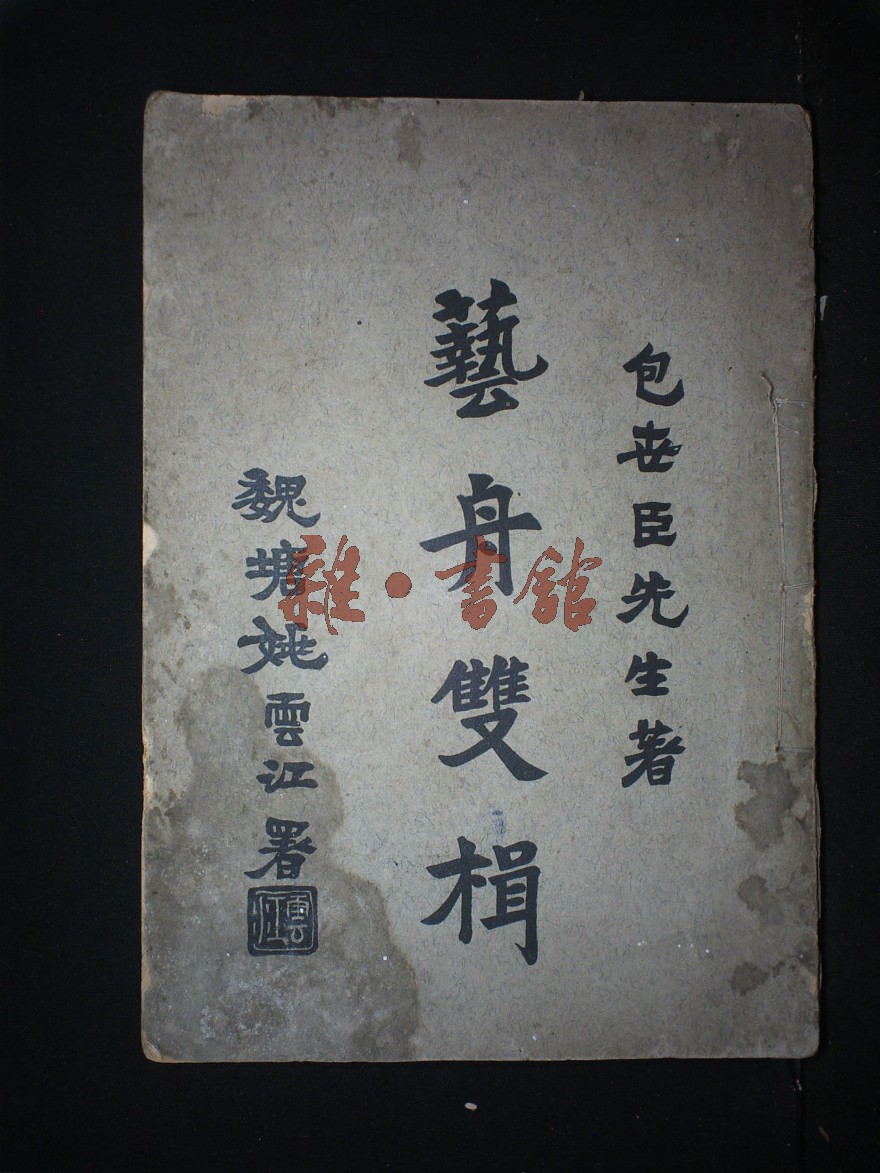 包世臣先生著
藝舟雙楫
魏塘姚雲江署
雲江
雜·書館